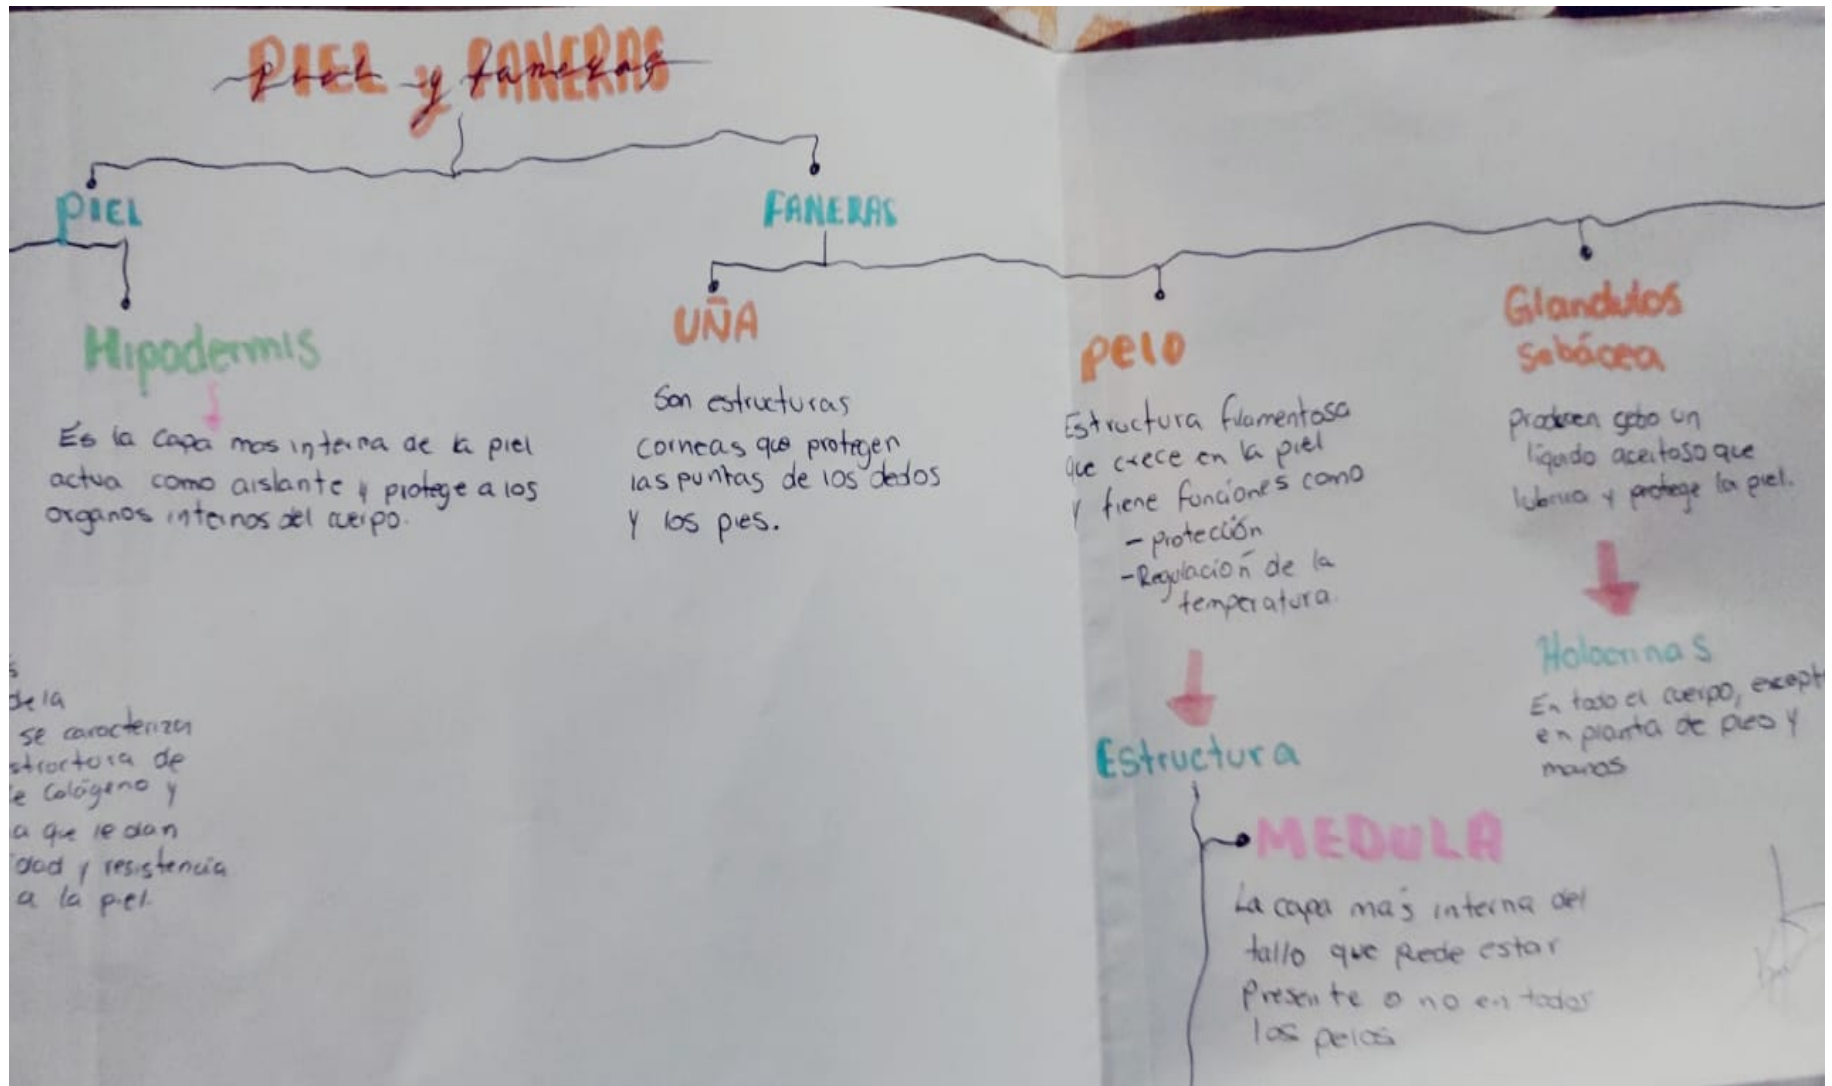 PIEL y FANERAS
piel y faneras
PIEL
FANERAS
Hipodermis
Es la capa mas interna de la piel
actua como aislante y protege a los
organos internos del cuerpo.
s
de la
se caracteriza
structura de
e Colágeno y
a que le dan
dad y resistencia
a la piel.
UÑA
Son estructuras
corneas que protegen
las puntas de los dedos
y los pies.
PELO
Estructura filamentosa
que crece en la piel
y tiene funciones como
- protección
- Regulación de la
temperatura.
Estructura
MEDULA
La capa más interna del
tallo que puede estar
Presente o no en todos
los pelos
Glandulos
Sebácea
producen sebo un
líquido aceitoso que
lubrica y protege la piel.
Holocrinas
En todo el cuerpo, except
en planta de pies y
manos